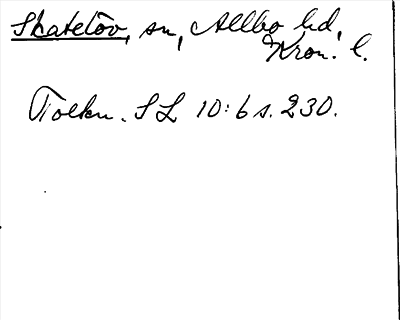 Skatelöv, sn, Allbo hd,
Kron. l.
Tolkn. SL 10:6 s. 230.